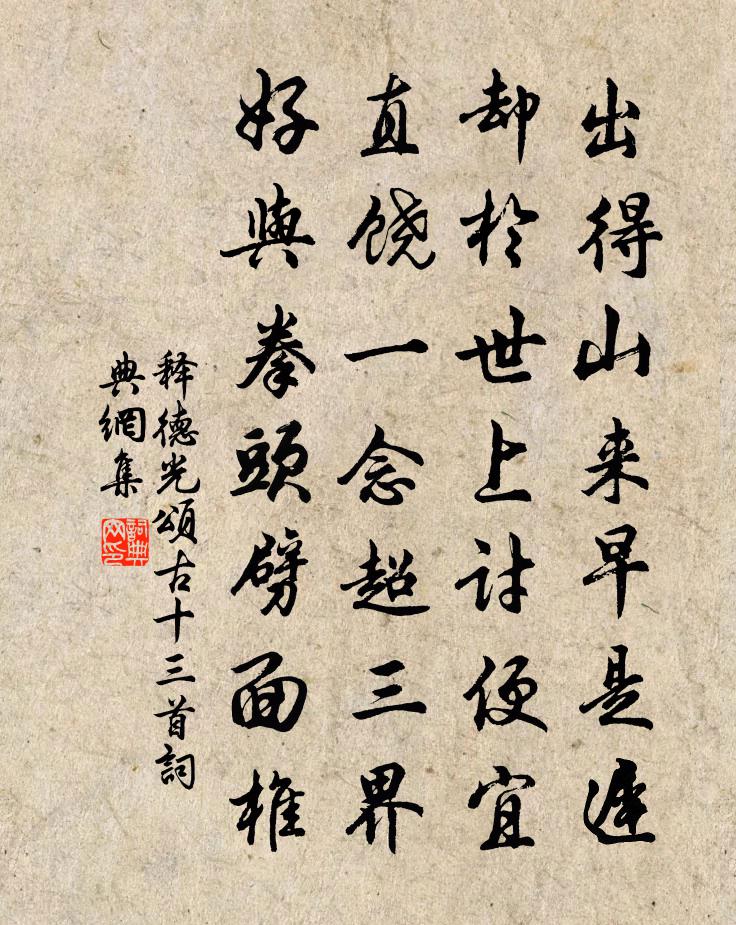 出得山来早是遲
却於世上討便宜
直饶一念超三界
好與拳頭劈面椎
释德光頌古十三首詞
典網集
詞典
网印